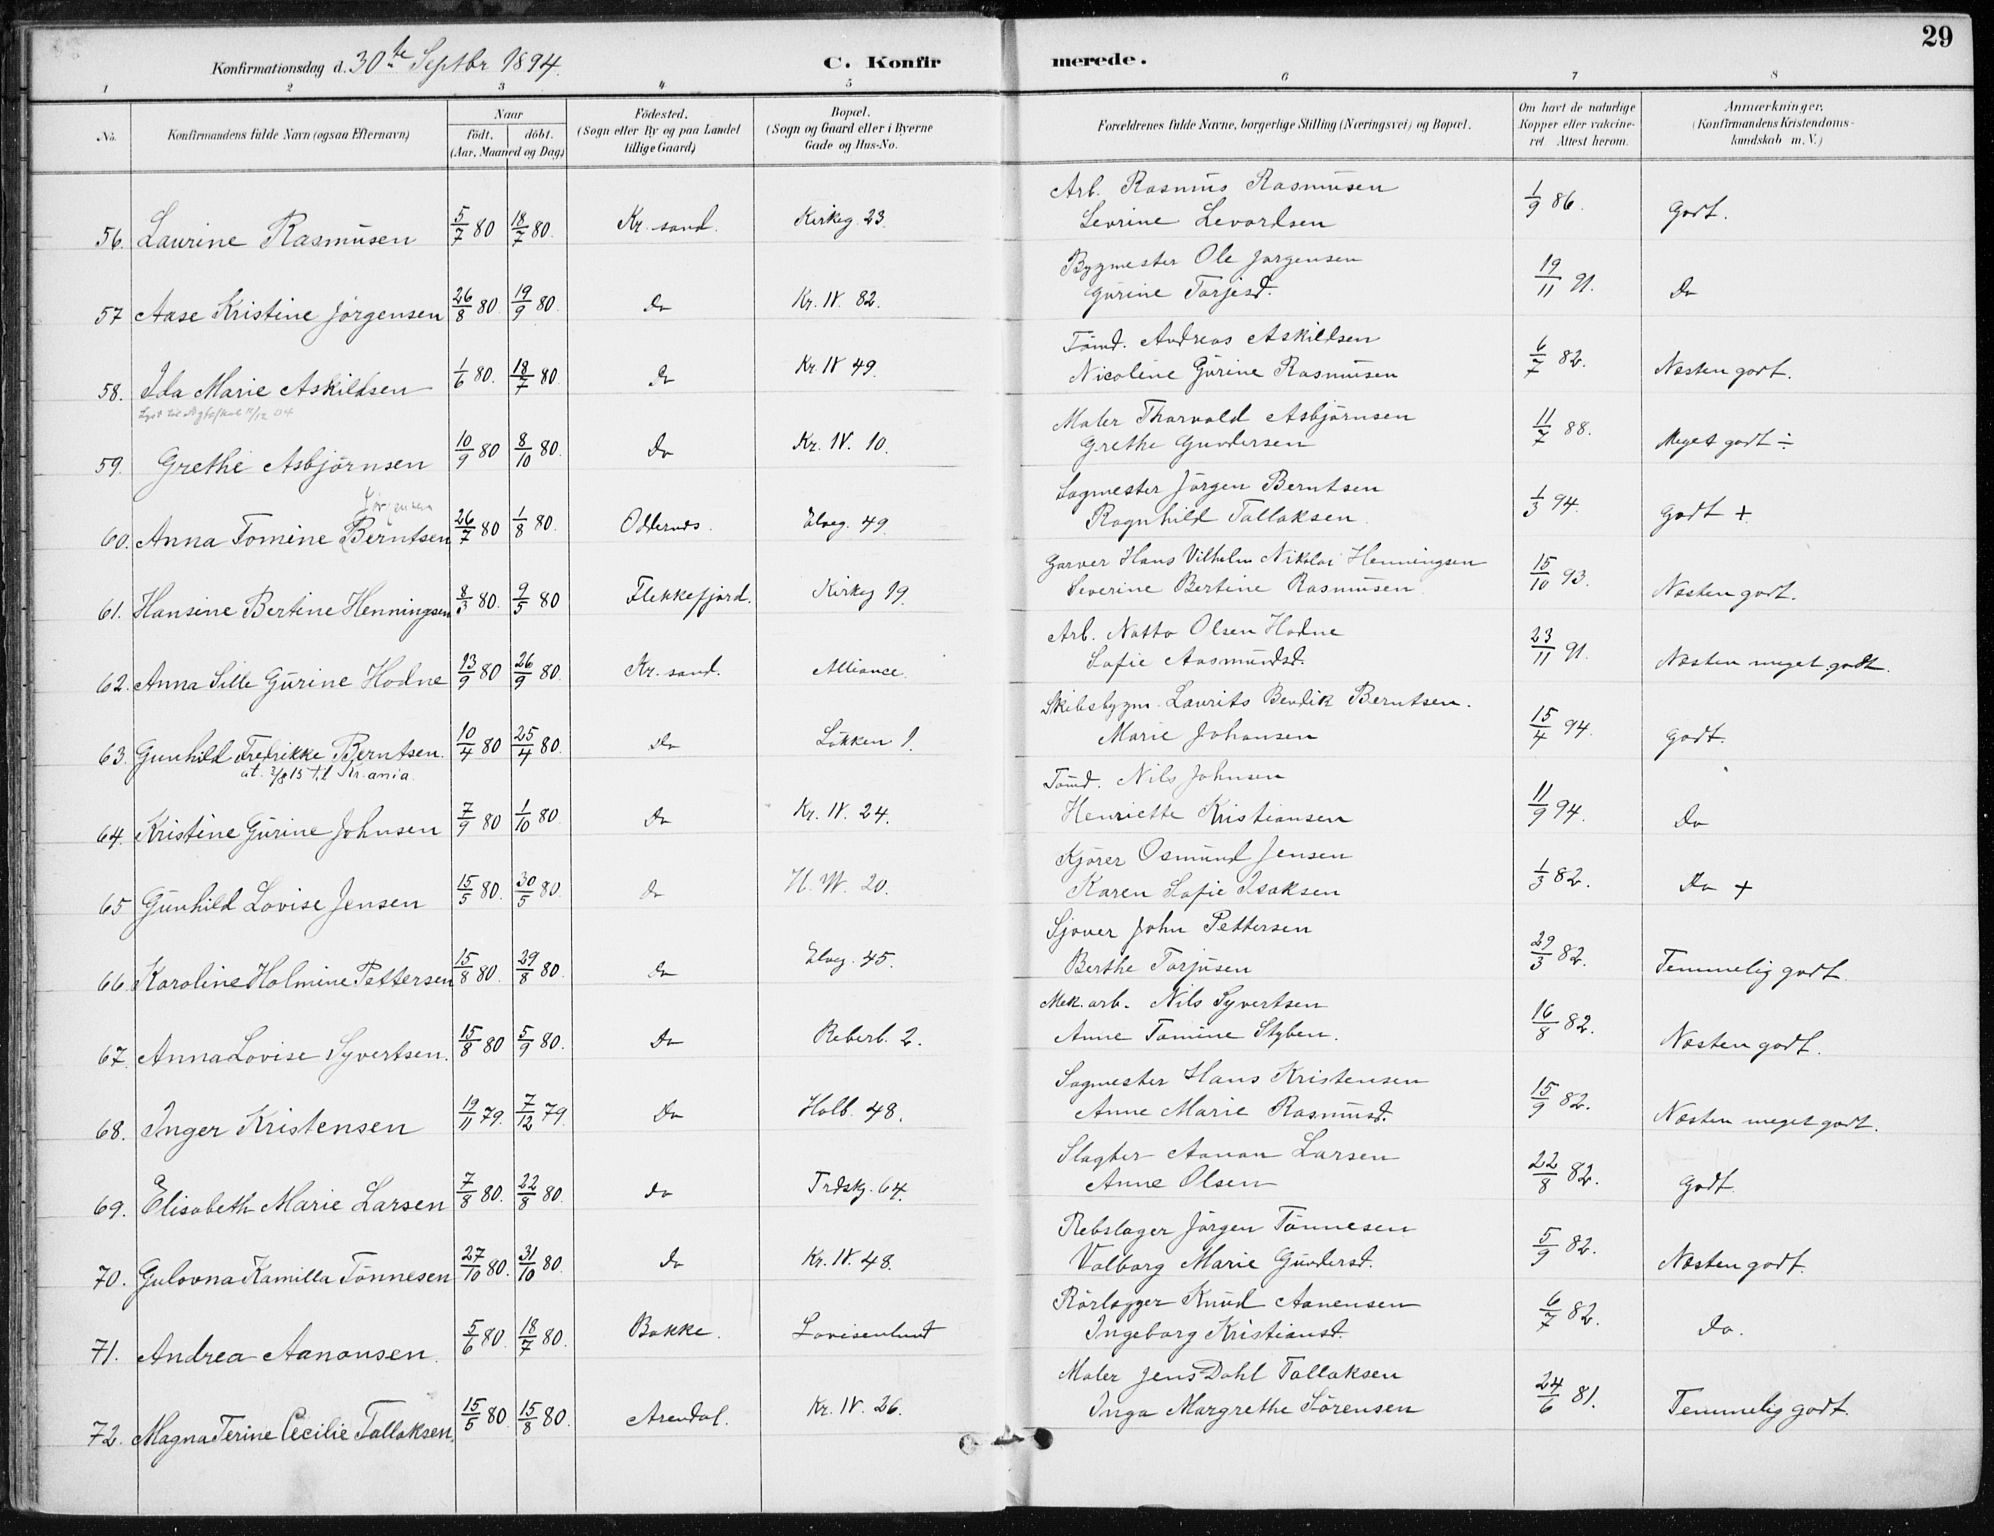 29
Konfirmationsdag d. 30te Septbr 1894. C. Konfirmerede.
1 2 3 4 5 6 7 8
No. Konfirmandens fulde Navn (ogsaa Efternavn) Naar födt. döbt. (Aar, Maaned og Dag) Födested. (Sogn eller By og paa Landet tillige Gaard) Bopæl. (Sogn og Gaard eller i Byerne Gade og Hus-No. Forældrenes fulde Navne, borgerlige Stilling (Næringsvei) og Bopæl. Om havt de naturlige Kopper eller vakcineret. Attest herom. Anmærkninger. (Konfirmandens Kristendomskundskab m. V.)
Arb. Rasmus Rasmusen
56. Laurine Rasmusen 5/7 80 18/7 80. Kr. sand. Kirkeg. 23. Sevrine Levordsen 1/9 86. Godt.
Bygmester Ole Jørgensen
57 Aase Kristine Jörgensen 26/8 80 19/9 80 Do Kr. IV. 82. Gurine Torjesd. 19/11 91. Do
Tömd. Andreas Askildsen
58. Ida Marie Askildsen 1/6 80. 18/7 80 Do Kr. IV 49. Nicoline Gurine Rasmusen 6/7 82. Næsten godt.
Maler Thorvald Asbjörnsen
59. Grethe Asbjörnsen 10/9 80 8/10 80. Do Kr. IV. 10. Grethe Gundersen 11/7 88. Meget godt ÷
Jörgensen
Sagmester Jörgen Berntsen
60. Anna Tomine Berntsen 26/7 80 1/8 80. Oddernes. Elveg. 49. Ragnhild Tallaksen. 1/3 94. Godt +
Garver Hans Vilhelm Nikolai Henningsen
61. Hansine Bertine Henningsen 8/3 80. 9/5 80 Flekkefjord. Kirkeg 19. Severine Bertine Rasmusen 15/10 93. Næsten godt.
Arb. Notto Olsen Hodne
62. Anna Sille Gurine Hodne 13/9 80 26/9 80. Kr. sand. Alliance. Sofie Aasmundsd. 23/11 91. Næsten meget godt.
Skibsbygm. Laurits Bendik Berntsen.
63. Gunhild Fredrikke Berntsen. 10/4 80 25/4 80. Do Løkken 1. Marie Johansen 15/4 94. Godt.
at. 2/8 15 til Kr.ania.
Tömd. Nils Johnsen
64. Kristine Gurine Johnsen 7/9 80 1/10 80 Do Kr. IV. 24. Henriette Kristiansen 11/9 94. Do
Kjörer Osmund Jensen
65 Gunhild Lovise Jensen 15/5 80. 30/5 80. Do H. W. 20. Karen Sofie Isaksen 1/3 82. Do +
Sjover John Pettersen
66. Karoline Holmine Pettersen 15/8 80. 29/8 80. Do Elveg. 45. Berthe Torjusen 29/3 82. Temmelig godt.
Mek. arb. Nils Syvertsen
67. Anna Lovise Syvertsen. 15/8 80 5/9 80. Do Reberb. 2. Anne Tomine Styben. 16/8 82. Næsten godt.
Sagmester Hans Kristensen
68. Inger Kristensen 19/11 79. 7/12 79. Do Holb. 48. Anne Marie Rasmusd. 15/9 82. Næsten meget godt.
Slagter Aanon Larsen
69. Elisabeth Marie Larsen 7/8 80. 22/8 80. Do Trdskj. 64. Anne Olsen 22/8 82. Godt.
Rebslager Jörgen Tönnesen
70. Gulovna Kamilla Tönnesen 27/10 80. 31/10 80. Do Kr. IV. 48. Valborg Marie Gundersd. 5/9 82. Næsten godt.
Rörlægger Knud Aanensen
71. Andrea Aanonsen. 5/6 80. 18/7 80. Bakke. Lovisenlund Ingeborg Kristiansd. 6/7 82. Do.
Maler Jens Dahl Tallaksen
72. Magna Terine Cecilie Tallaksen. 15/5 80 15/8 80. Arendal. Kr. IV. 26. Inga Margrethe Sörensen 24/6 81. Temmelig godt.